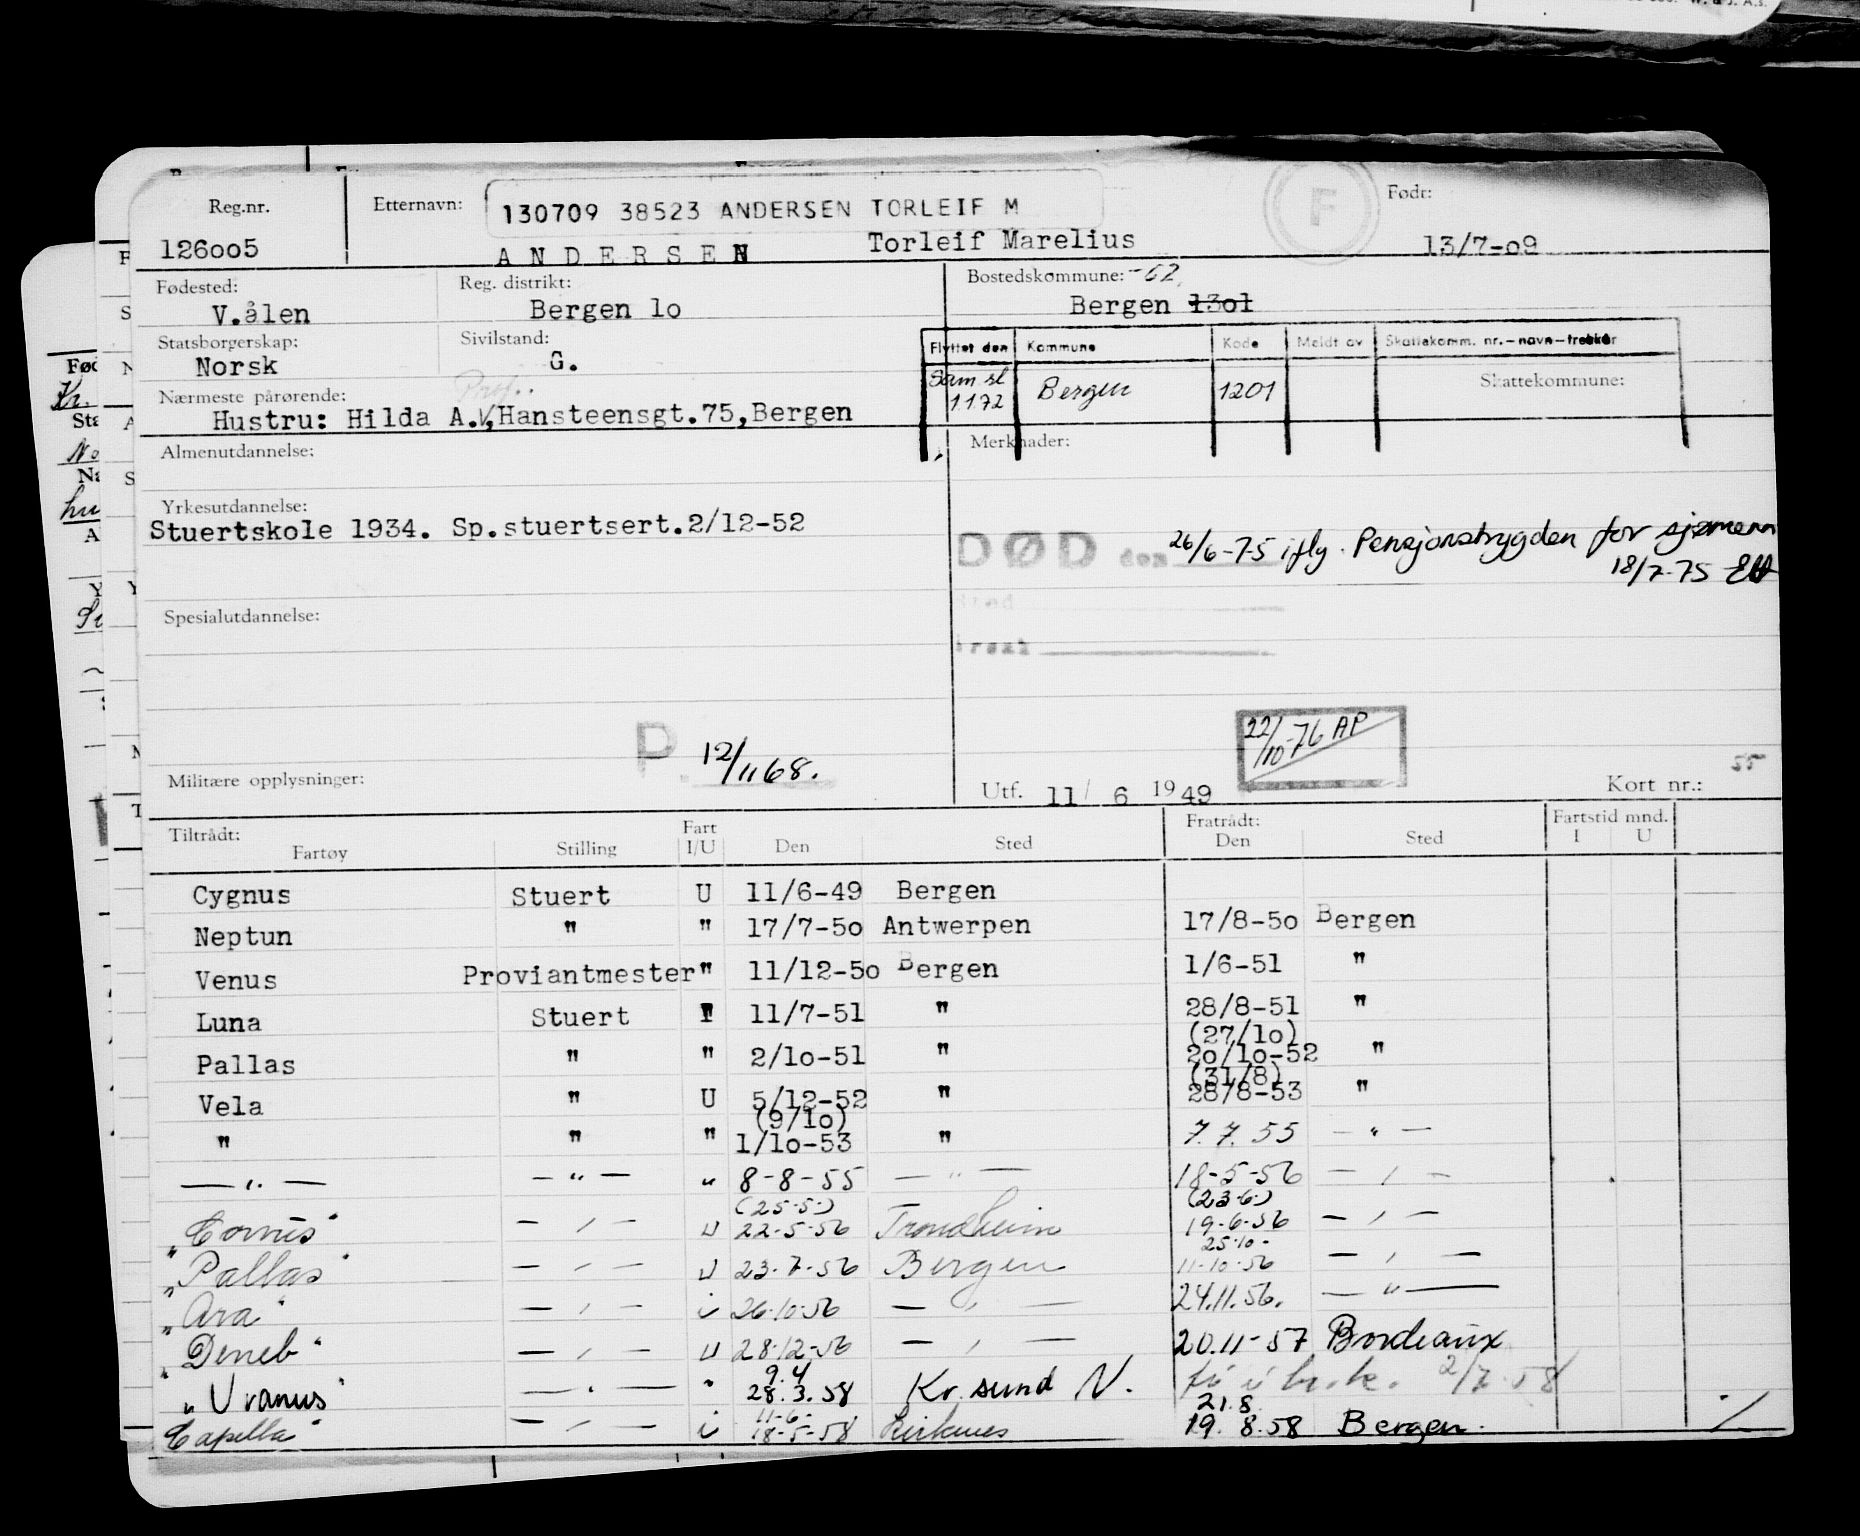 Reg.nr. Etternavn: 130709 38523 ANDERSEN TORLEIF M F Født:
126oo5 ANDERSEN Torleif Marelius 13/7-o9
Fødested: Reg. distrikt: Bostedskommune: -62
V.ålen Bergen lo Bergen 13o1
Statsborgerskap: Sivilstand: Flyttet den Kommune Kode Meldt av Skattekomm. nr.-navn-trekkår
Norsk G. Skattekommune:
Nærmeste pårørende: Sam sl 1172 Bergen 1201
Hustru: Hilda A.V,Hansteensgt.75,Bergen
Almenutdannelse: Merknader:
Yrkesutdannelse:
Stuertskole 1934. Sp.stuertsert.2/12-52
DØD den 26/6-75 ifly. Pensjonstrygden for sjømenn
18/7-75
Spesialutdannelse:
P. 12/11 68.
22/10-76 AP
Militære opplysninger: Utf. 11/ 6 1949 Kort nr.: 55
Tiltrådt: Fart Fratrådt: Fartstid mnd.
Fartøy Stilling I/U Den Sted Den Sted I U
Cygnus Stuert U 11/6-49 Bergen
Neptun " " 17/7-5o Antwerpen 17/8-5o Bergen
Venus Proviantmester " 11/12-5o Bergen 1/6-51 "
Luna Stuert " 11/7-51 " 28/8-51 "
(27/1o)
Pallas " " 2/1o-51 " 2o/1o-52 "
(31/8)
Vela " U 5/12-52 " 28/8-53 "
(9/1o)
" " " 1/1o-53 " 7.7.55 — " —
— " — — " — " 8-8-55 — " — 18-5-56 — " —
(25.5.) (23.6.)
"Corvus" — " — U 22-5-56 Trondheim 19-6-56 — " —
25.10.
"Pallas" — " — U 23-7-56 Bergen 11-10-56 — " —
"Ara" — " — i 26.10.56 — " — 24.11.56. — " —
"Deneb" — " — U 28.12-56 — " — 20.11-57 Bordeaux
9.4
"Uranus" — " — " 28.3.58 Kr.sund N. 2/7-58
11-6- 21.8
Capella" — " — i 18-5-58 Kirkenes 19.8.58 Bergen.